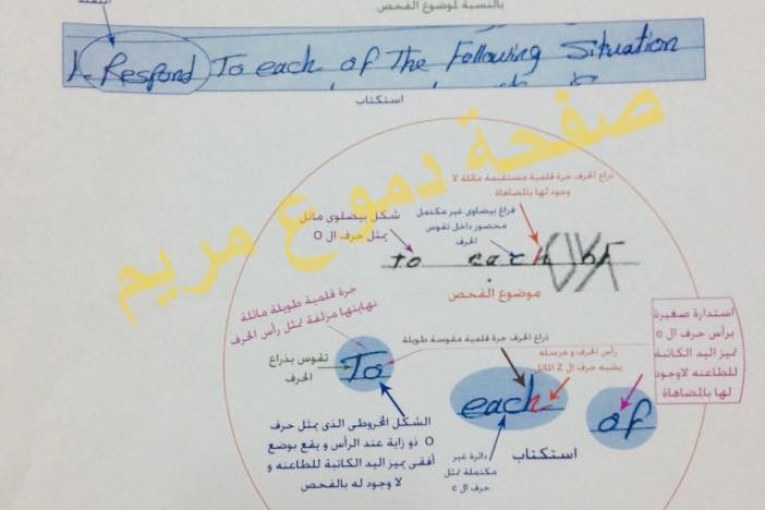 بالنسبة لموضوع الفحص
1- Respond To each of The Following Situation
استكتاب
صفحة دموع مريم
ذراع الحرف جرة قلمية مستقيمة مائلة لا
وجود لها بالمضاهاة
فراغ بيضاوى غير مكتمل
محصور داخل تقوس
الحرف
شكل بيضاوى مائل
يمثل حرف ال O
to each of
موضوع الفحص
جرة قلمية طويلة مائلة
نهايتها مزلفة تمثل رأس الحرف
ذراع الحرف جرة قلمية مقوسة طويلة
رأس الحرف و مرسله
يشبه حرف ال Z المائل
تقوس بذراع
الحرف
To each of
استدارة صغيرة
برأس حرف ال o
تميز اليد الكاتبة
للطاعنه لاوجود
لها بالمضاهاة
الشكل المخروطى الذى يمثل حرف
O ذو زاية عند الرأس و يقع بوضع
أفقى يميز اليد الكاتبة للطاعنه و
لا وجود له بالفحص
دائرة غير
مكتملة تمثل
حرف ال c
استكتاب